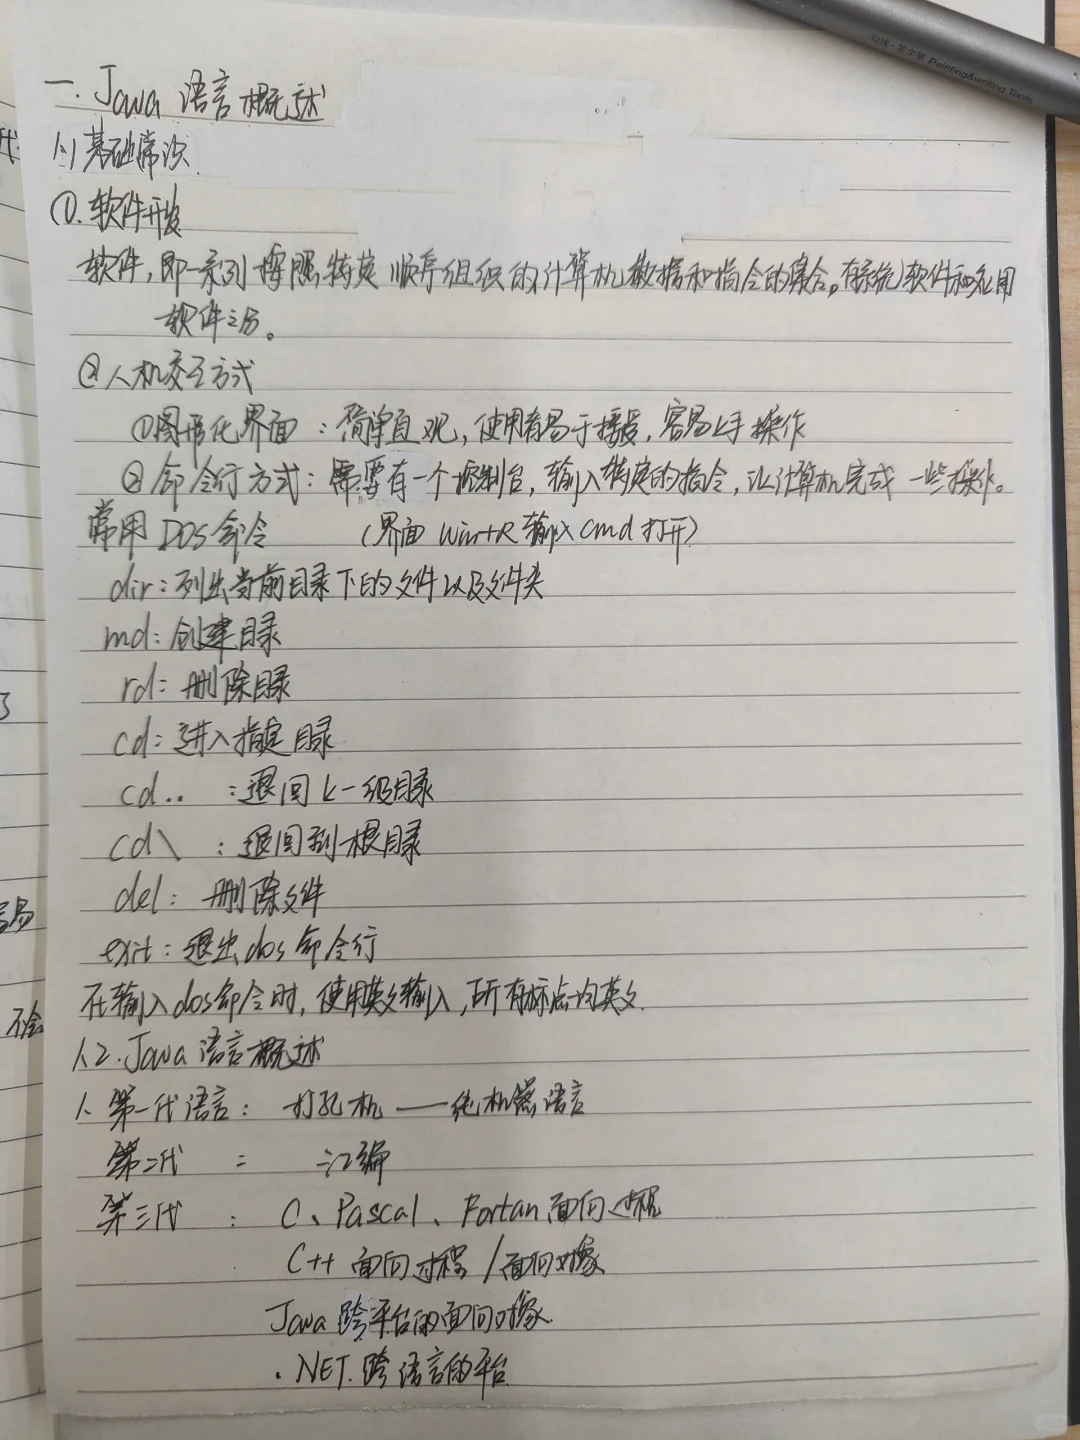 一. Java 语言概述
1.1 基础常识
①. 软件开发
软件,即一系列按照特定顺序组织的计算机数据和指令的集合。有系统软件和应用
软件之分。
② 人机交互方式
①图形化界面:简单直观,使用者易于接受,容易上手操作
② 命令行方式:需要有一个控制台,输入特定的指令,让计算机完成一些操作。
常用 DOS 命令 (界面 Win+R 输入 cmd 打开)
dir:列出当前目录下的文件以及文件夹
md:创建目录
rd:删除目录
cd:进入指定目录
cd.. :退回上一级目录
cd\ :退回到根目录
del:删除文件
exit:退出dos命令行
在输入dos命令时,使用英文输入,所有标点均英文.
1.2.Java 语言概述
1. 第一代语言: 打孔机——纯机器语言
第二代 : 汇编
第三代 : C、Pascal、Fortan 面向过程
C++ 面向过程/面向对象
Java 跨平台的面向对象.
.NET. 跨语言的平台
勾线·多字笔 Painting&writing Tools
代
易
不会